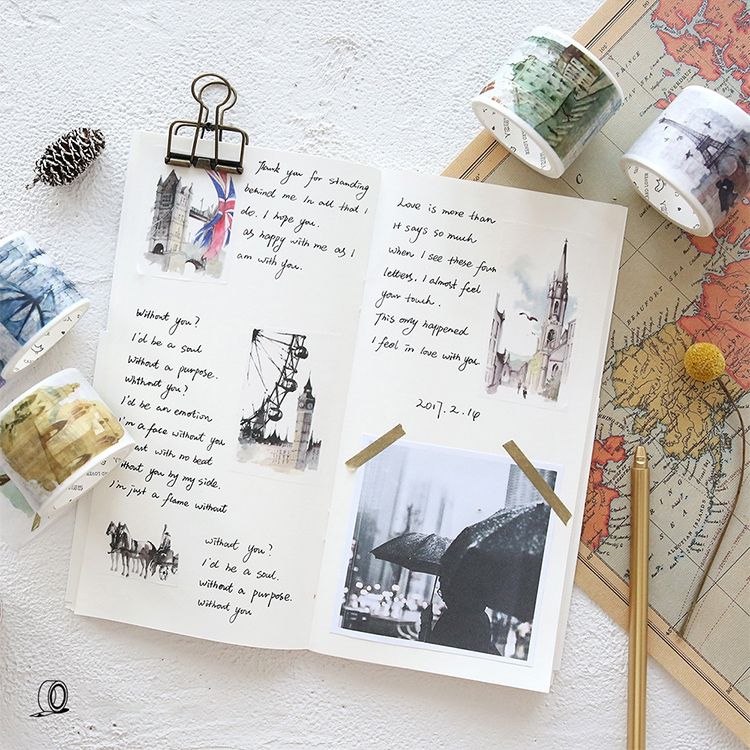 Thank you for standing
behind me in all that I
do. I hope you.
as happy with me as I
am with you.
Without you?
I'd be a soul
Without a purpose.
Whthout you?
I'd be an emotion
I'm a face without you
art with no beat
without you by my side.
I'm just a flame without
without you?
I'd be a soul.
without a purpose.
without you
Love is more than
it says so much
when I see these four
letters. I almost feel
your touch.
This only happened
I feel in love with you
2017.2.14
BEAUFORT SEA